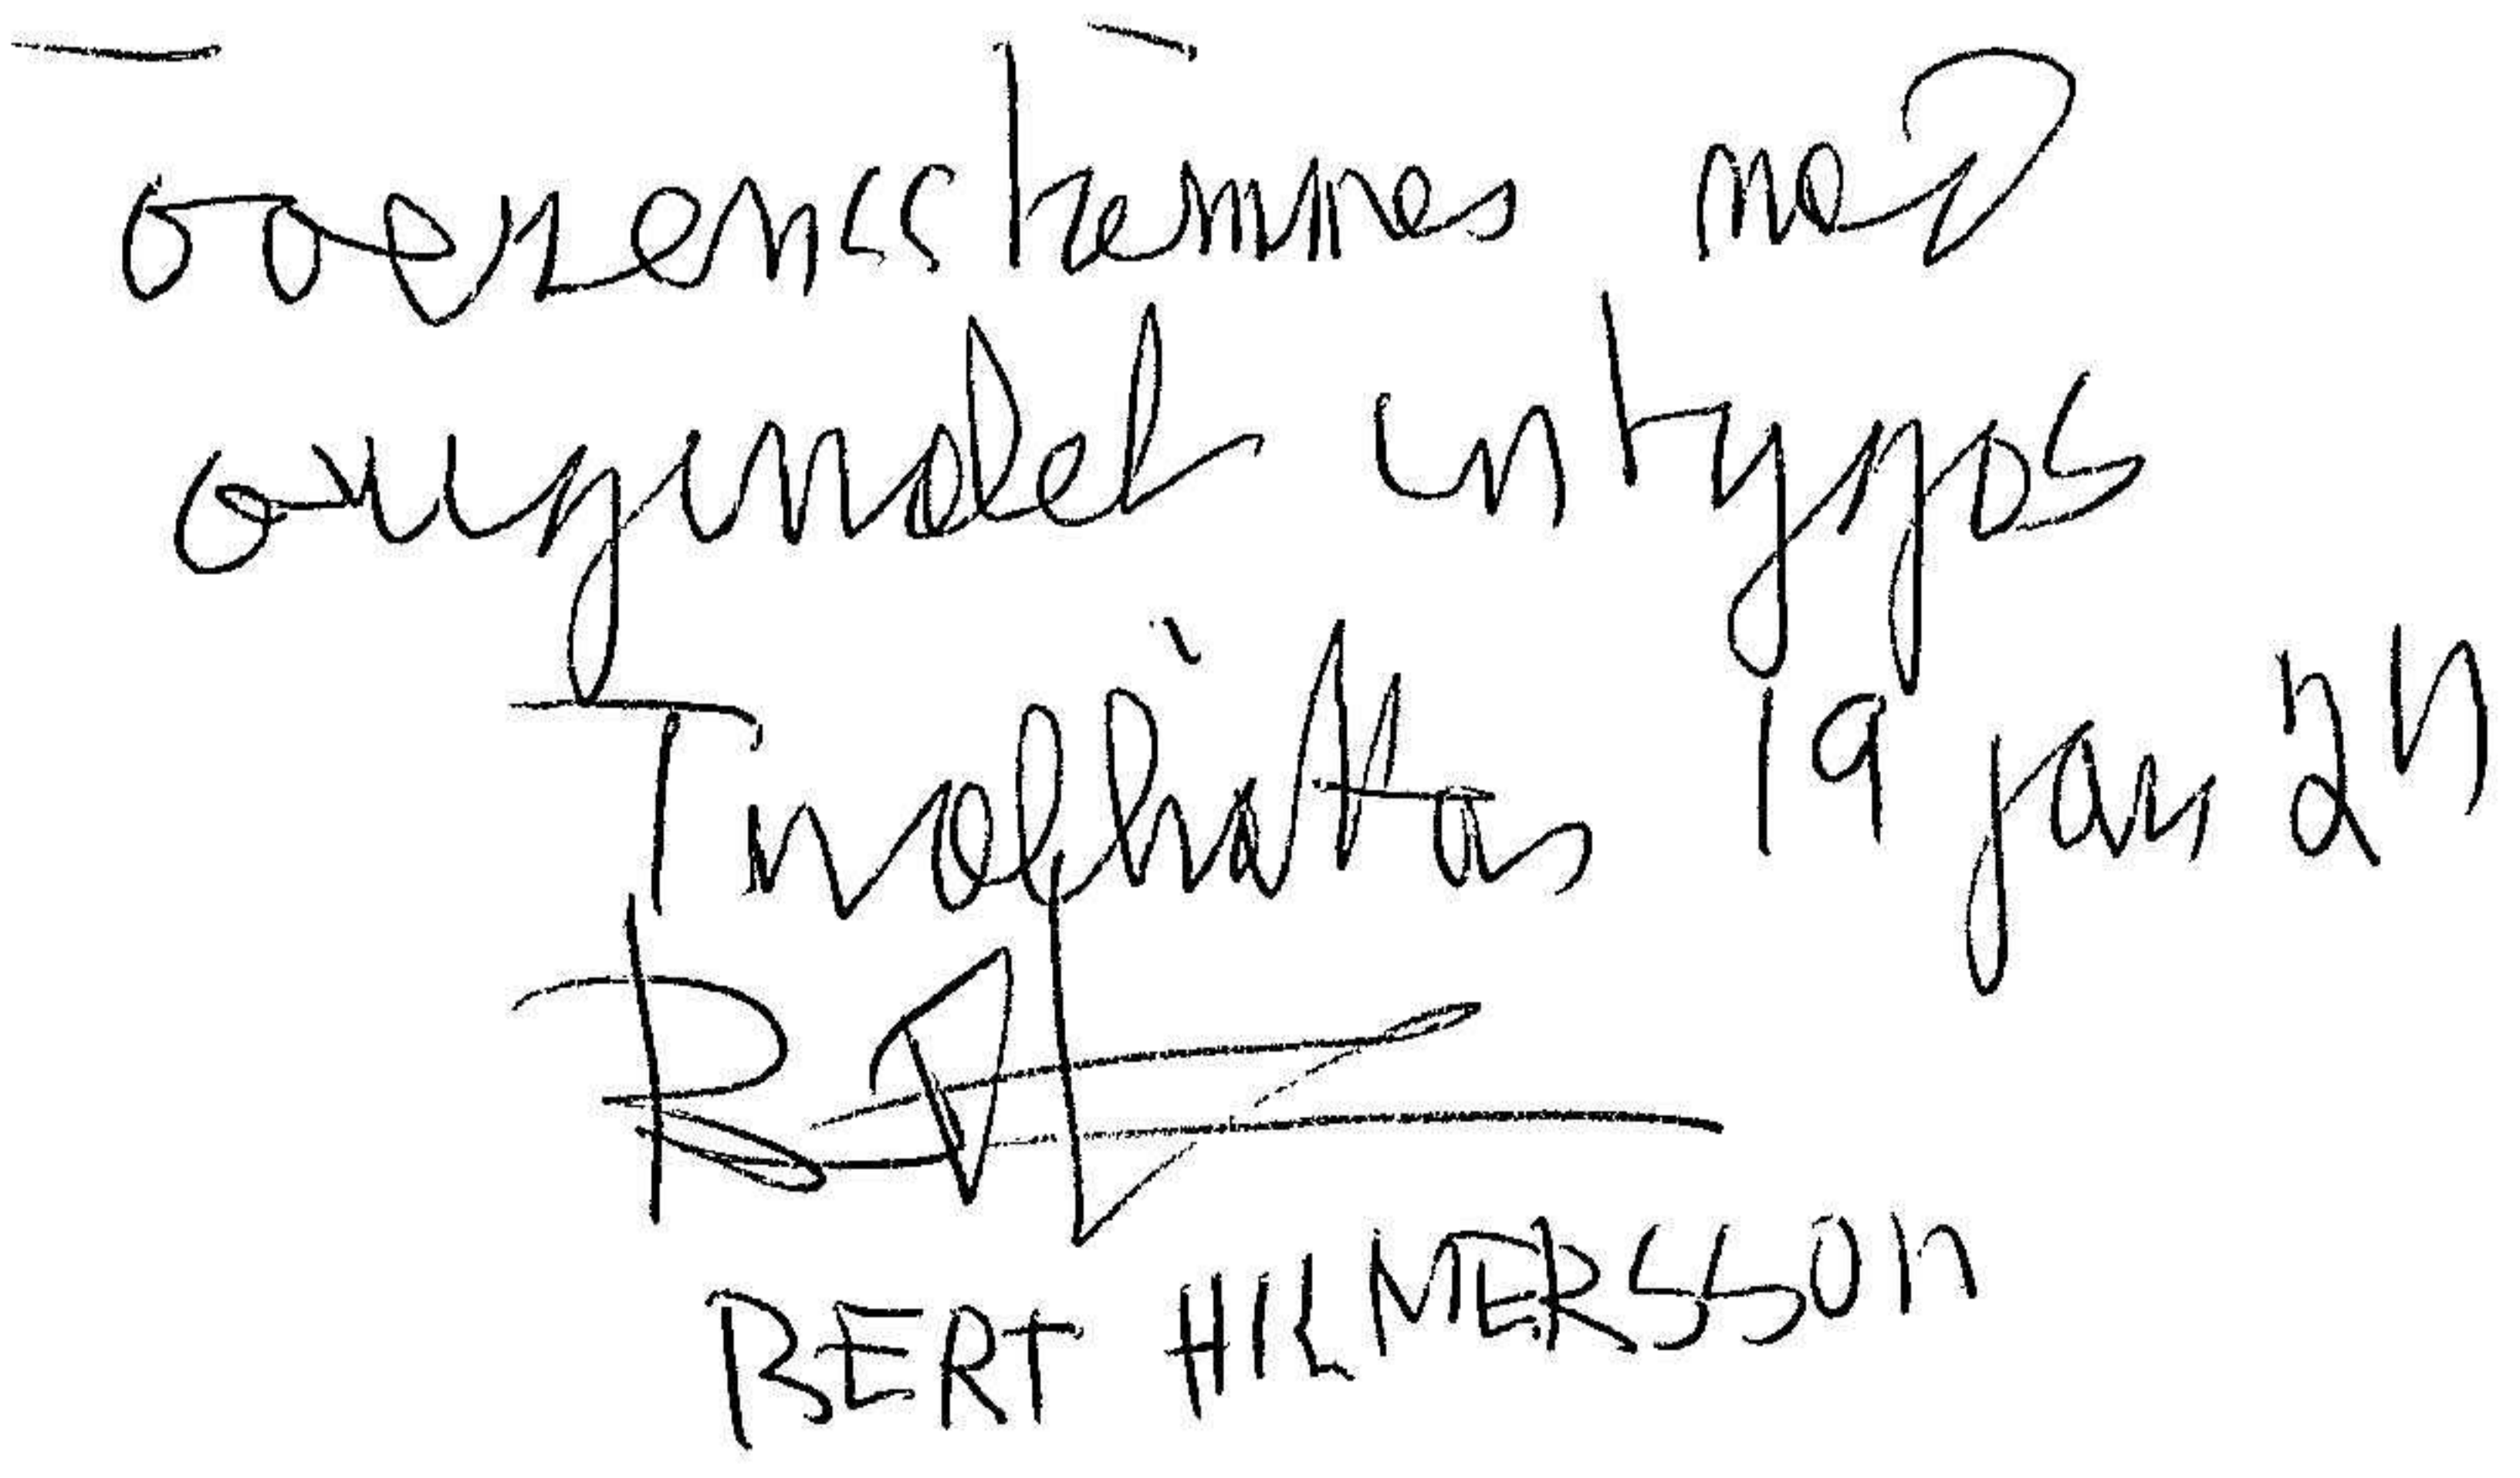 överensstämmes med
originalet intygas
Trollhättan 19 jan 24
BERT HILMERSSON